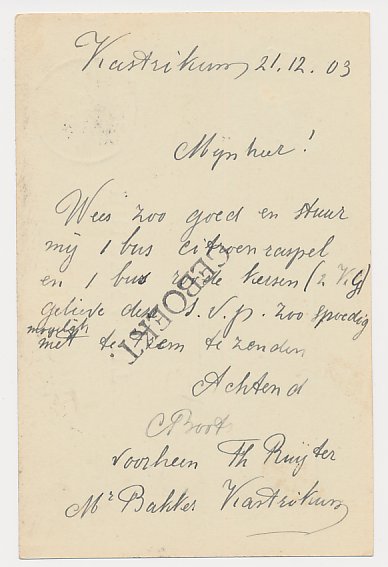 Kastrikum 21.12.03
Mijnheer!
Wees zoo goed en stuur
mij 1 bus citroenraspel
en 1 bus roode kersen (2 K.G)
gelieve deze s.v.p. zoo spoedig
mogelijk
met te zenden
GEBOEKT.
Achtend
CBoot
voorheen Th Ruijter
Mr Bakker Kastrikum